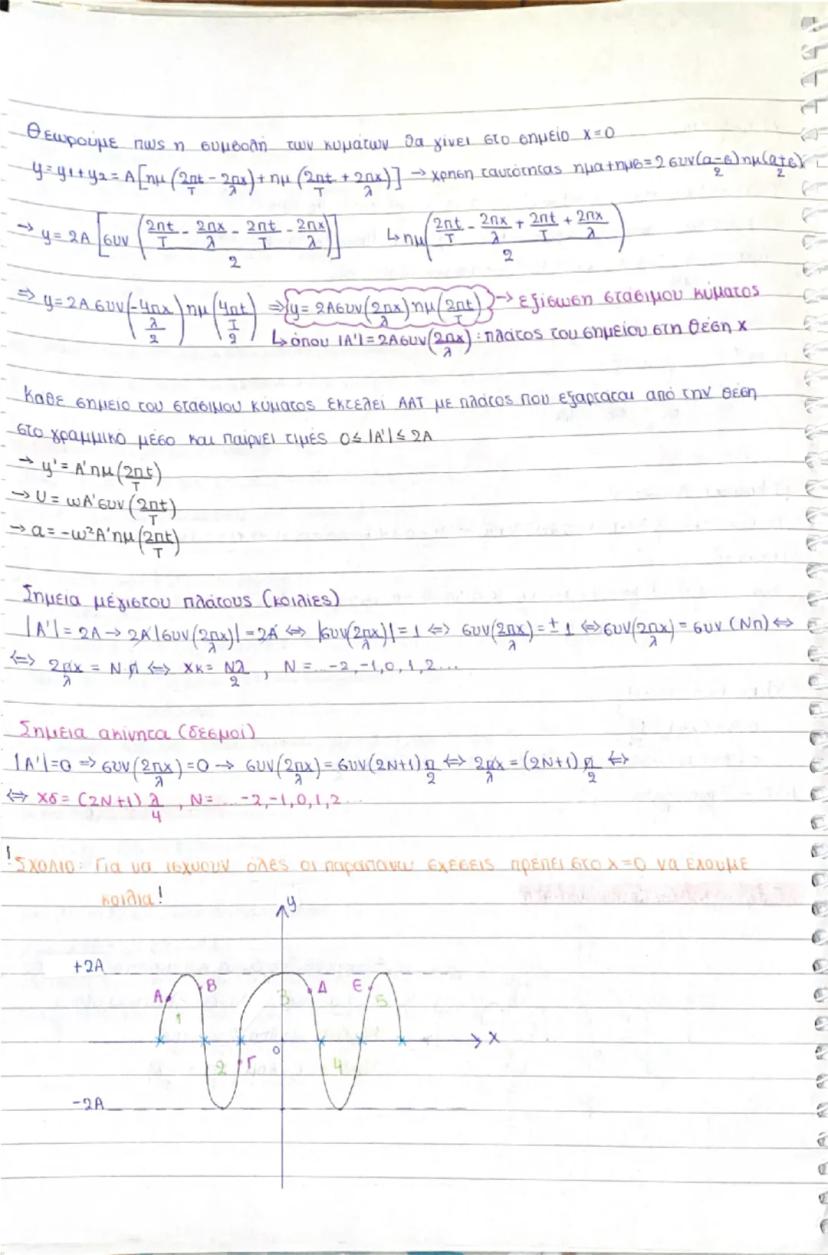 Θεωρούμε πως η συμβολή των κυμάτων θα γίνει στο σημείο x=0
y=y1+y2=A[ημ(2πt/T - 2πx/λ)+ημ(2πt/T + 2πx/λ)] → χρήση ταυτότητας ημα+ημβ=2συν(α-β)/2 ημ(α+β)/2
→ y=2A[συν(2πt/T - 2πx/λ - 2πt/T - 2πx/λ)/2] ↳ημ(2πt/T - 2πx/λ + 2πt/T + 2πx/λ)/2
⇒ y=2Aσυν(-4πx/λ/2)ημ(4πt/T/2) ⇒ y=2Aσυν(2πx/λ)ημ(2πt/T) → εξίσωση στάσιμου κύματος
↳ όπου |A'|=2Aσυν(2πx/λ): πλάτος του σημείου στη θέση x
Κάθε σημείο του στάσιμου κύματος εκτελεί ΑΑΤ με πλάτος που εξαρτάται από την θέση
στο γραμμικό μέσο και παίρνει τιμές 0≤|A'|≤2A
→ y'=A'ημ(2πt/T)
→ υ=ωA'συν(2πt/T)
→ a=-ω²A'ημ(2πt/T)
Σημεία μέγιστου πλάτους (κοιλίες)
|A'|=2A → 2A|συν(2πx/λ)|=2A ⇔ |συν(2πx/λ)|=1 ⇔ συν(2πx/λ)=±1 ⇔ συν(2πx/λ)=συν(Nπ) ⇔
⇔ 2πx/λ = Nπ ⇔ xκ=Nλ/2 , N=...-2,-1,0,1,2...
Σημεία ακίνητα (δεσμοί)
|A'|=0 ⇒ συν(2πx/λ)=0 → συν(2πx/λ)=συν(2N+1)π/2 ⇔ 2πx/λ=(2N+1)π/2 ⇔
⇔ xδ=(2N+1)λ/4 , N=...-2,-1,0,1,2...
! ΣΧΟΛΙΟ: Για να ισχύουν όλες οι παραπάνω σχέσεις πρέπει στο x=0 να έχουμε
κοιλία!
y
+2A
A B Δ E
1 3 5
0 x
2 Γ 4
-2A